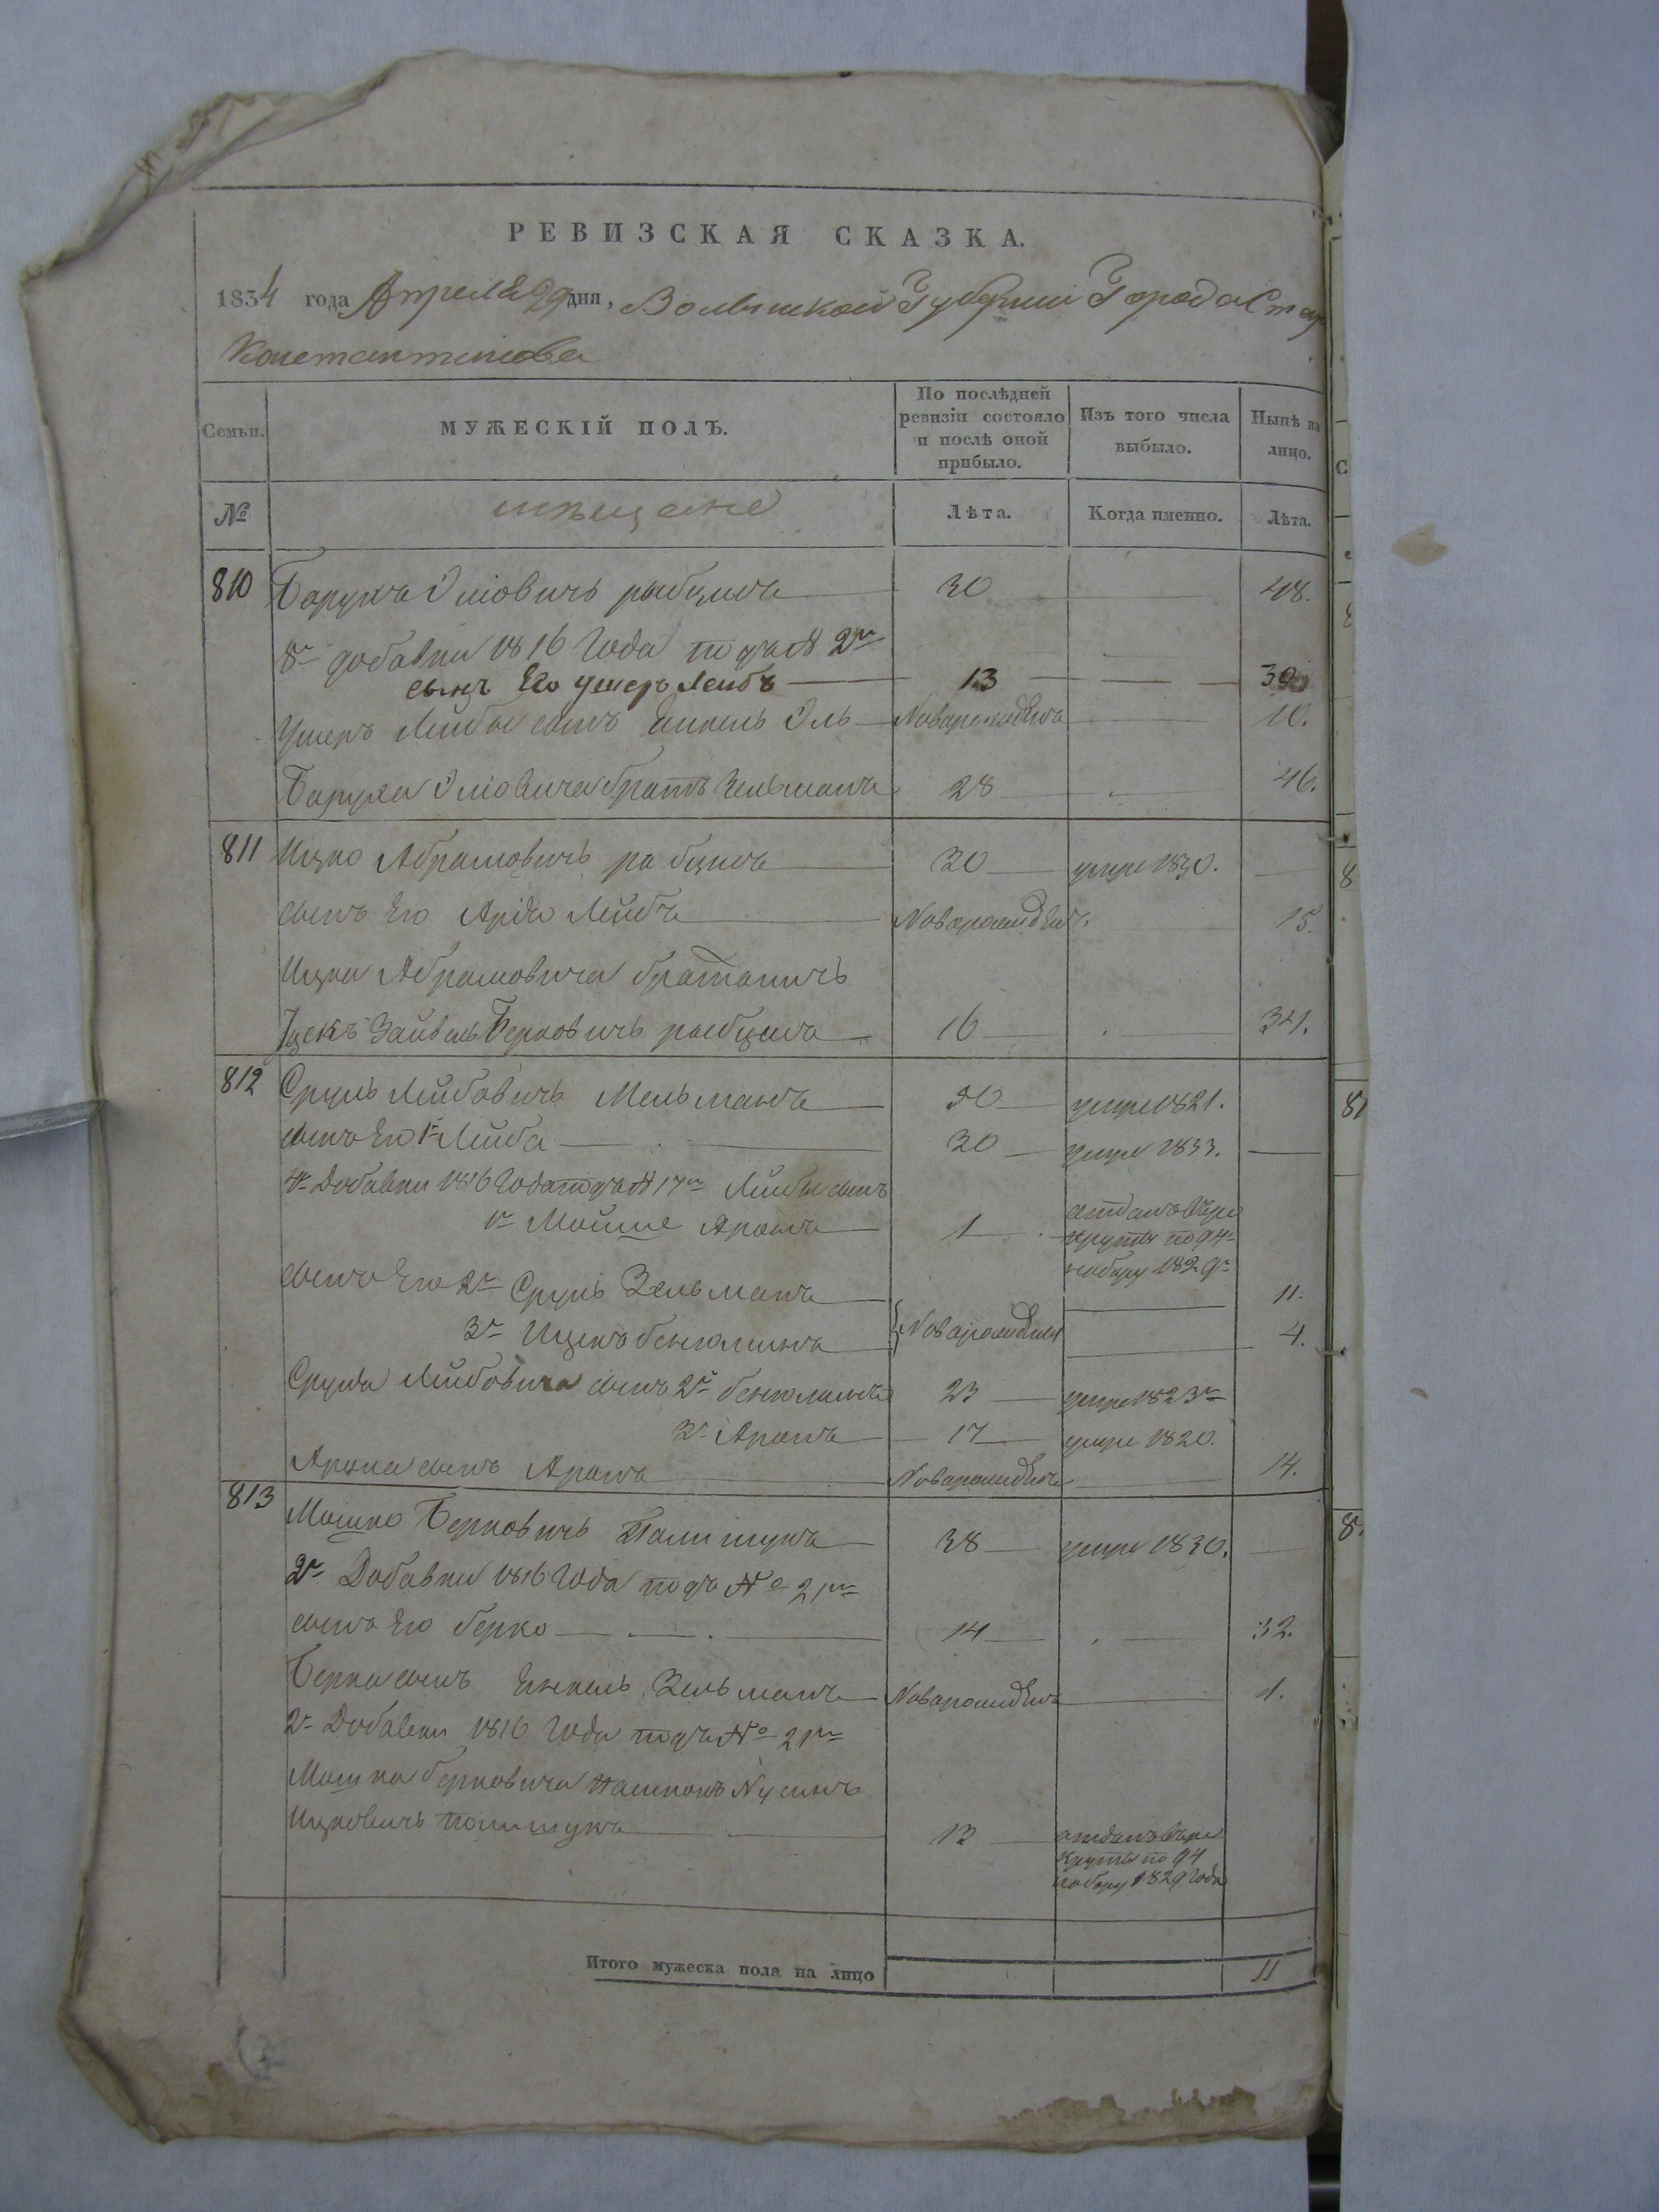 РЕВИЗСКАЯ СКАЗКА.
1834 года Апреля 29 дня, Волынской Губернии Города Стар
Константинова
Семьи. МУЖЕСКІЙ ПОЛЪ. По послѣдней ревизіи состояло и послѣ оной прибыло. Изъ того числа выбыло. Нынѣ на лицо.
№ мѣщане Лѣта. Когда именно. Лѣта.
810 Барухъ Эліовичъ 30 48.
добавки 1816 года подъ № 2м
сынъ Его Ушеръ Лейбъ 13
Ушеръ Лейбы сынъ Янкель Эль Новорожденъ 10.
Баруха Эліовича братъ Зельманъ 28 46.
811 Ицко Абрамовичъ 30 умре 1830.
сынъ Его Лейбъ Новорожден. 15.
Ицка Абрамовича братаничъ
Зайвель Берковичъ 16 34.
812 Сруль Лейбовичъ Мельманъ умре 1821.
сынъ Его 1й Лейба 30 умре 1833.
Добавки 1816 Года подъ № 17м Лейбы сынъ
1й Мойше Аронъ 1 отданъ въ ре
круты по 94
набору 1829г
сынъ Его 2й Сруль Зельманъ 11.
3й Ицекъ Бенюминъ Новорожденъ 4.
Сруля Лейбовича сынъ 2й Бенюминъ 23 умре 1823г
3й Аронъ 17 умре 1820.
Арона сынъ Аронъ Новорожденъ 14.
813 Мошко Берковичъ Полишукъ 38 умре 1830.
2й Добавки 1816 Года подъ № 21м
сынъ Его Берко 14 32.
Берка сынъ Янкель Зельманъ Новорожденъ 1.
2й Добавки 1816 Года подъ № 21м
Мошка Берковича Нусинъ
Ицковичъ Полишукъ 13 отданъ въ ре
круты по 94
набору 1829 Года
Итого мужеска пола на лицо 11